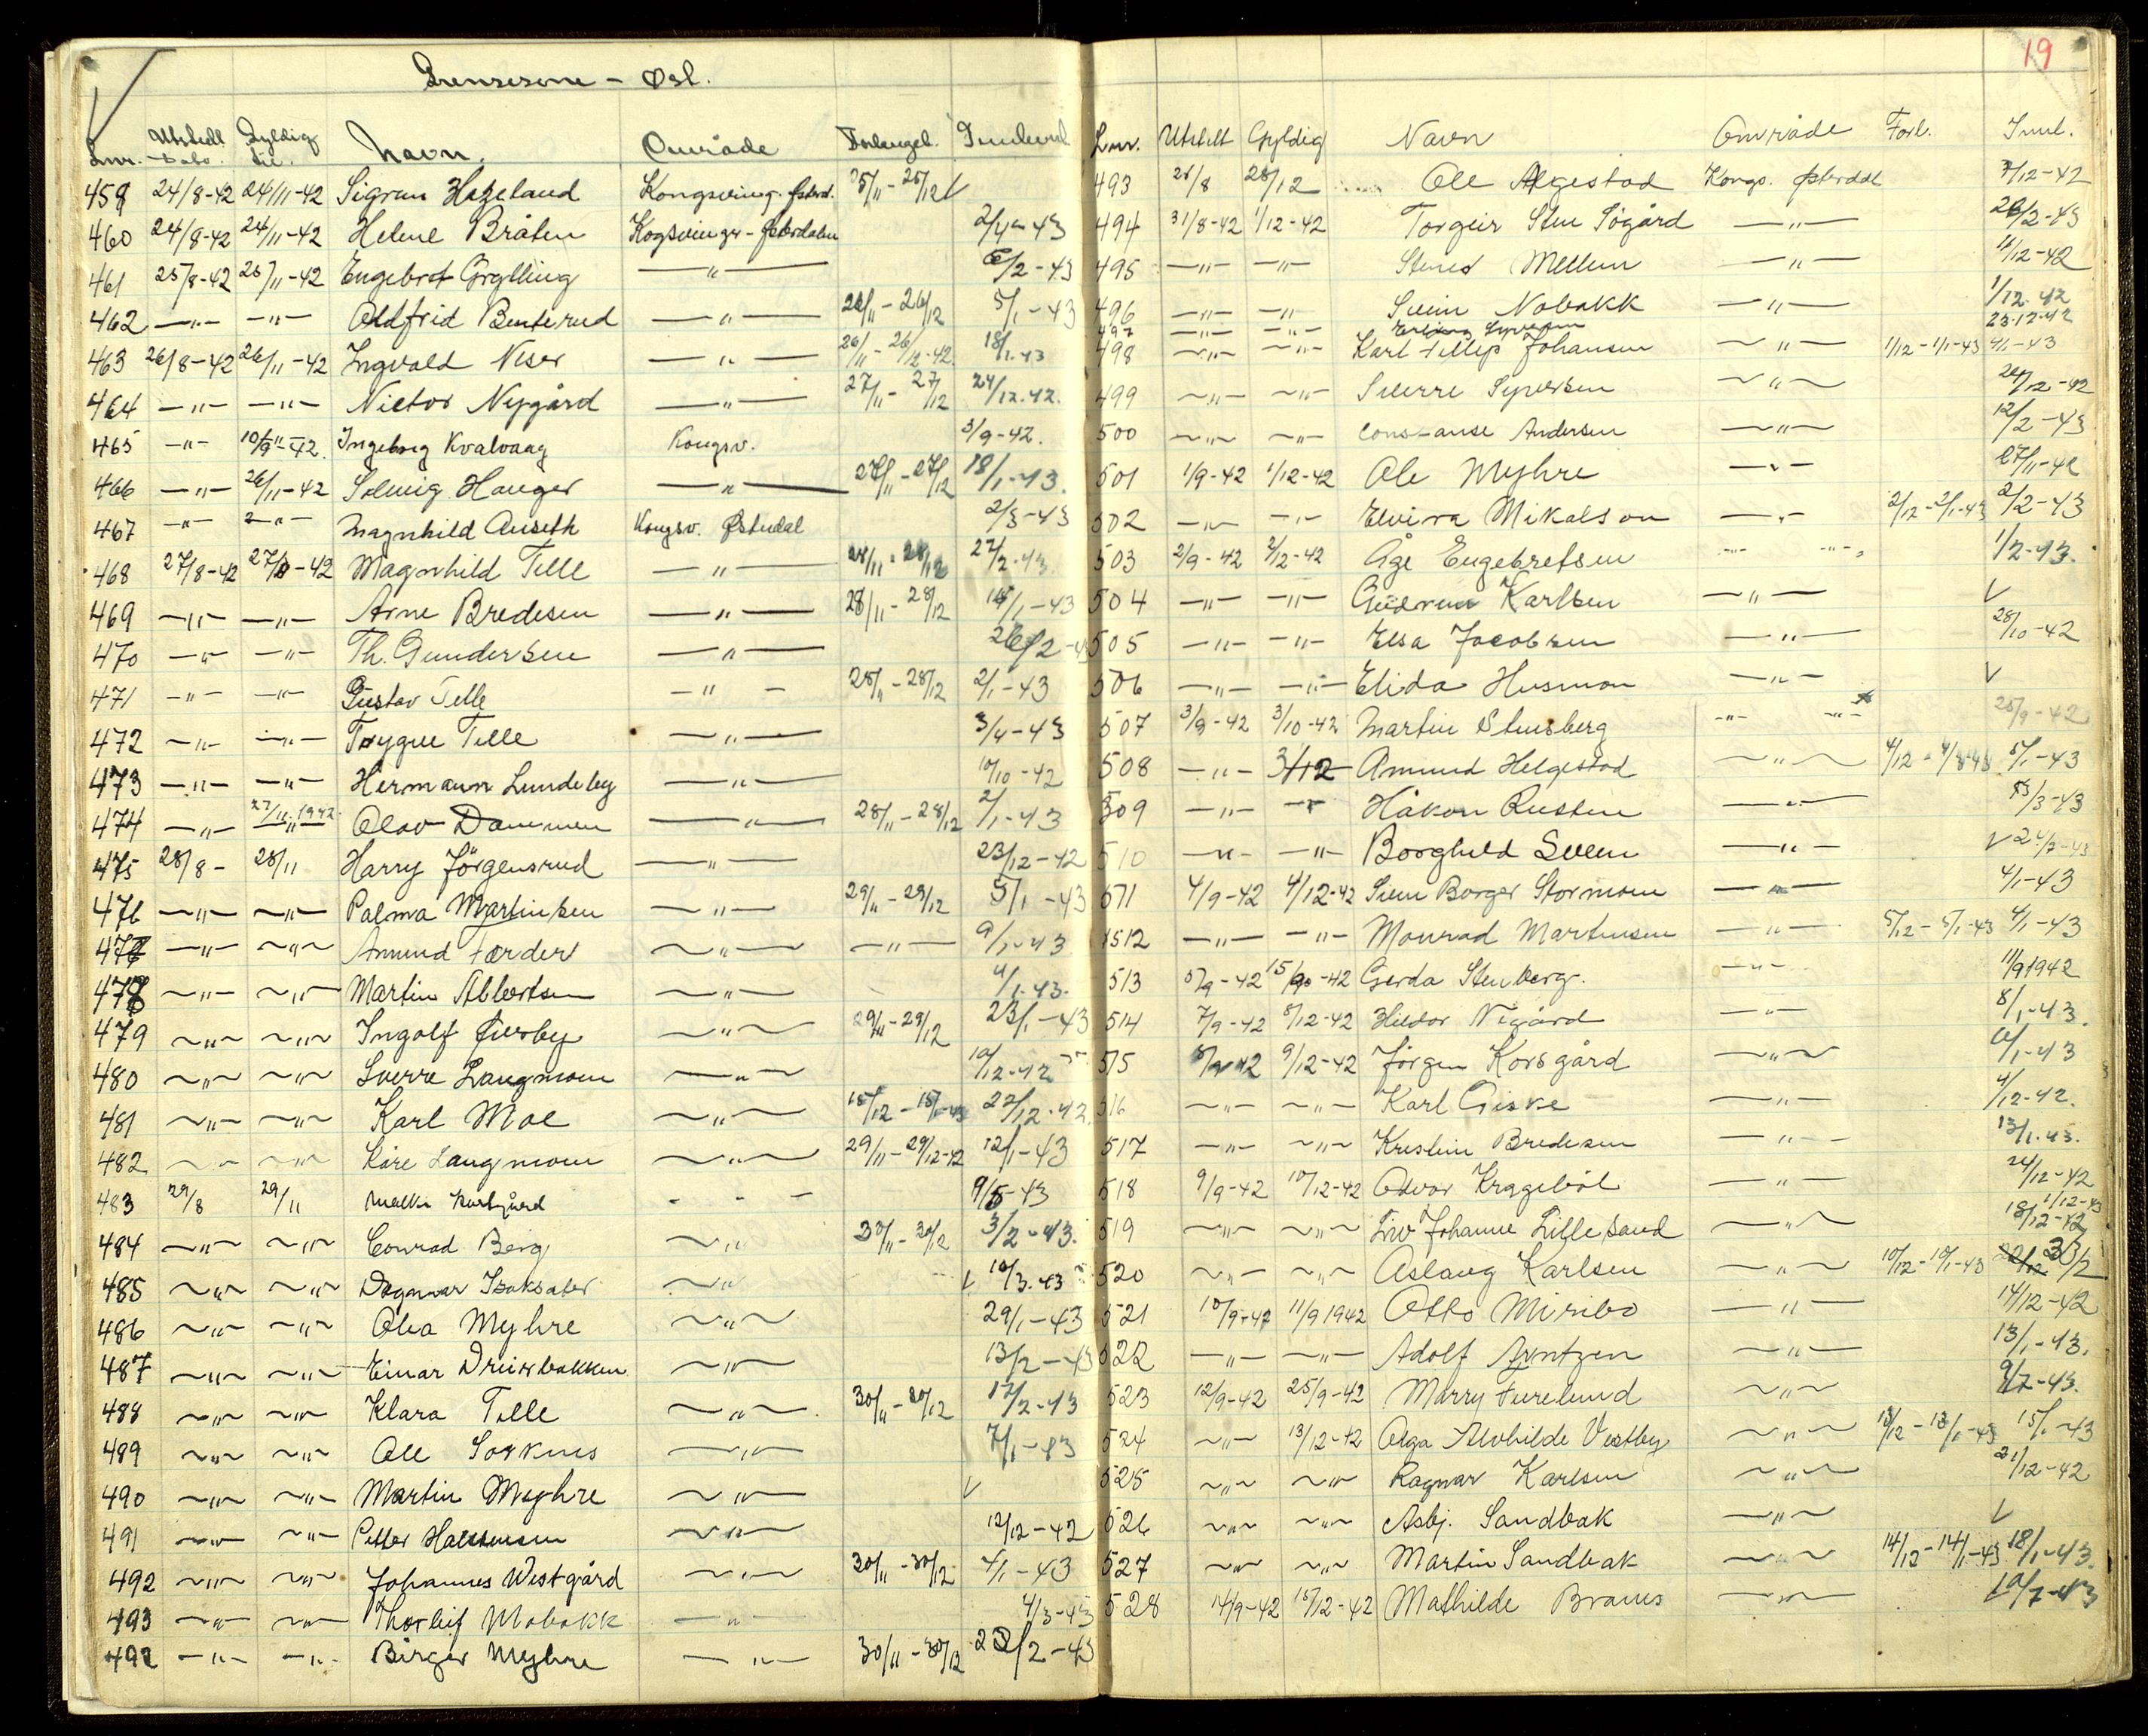 19
Grensesone - Øst.
Lnr. Utstedt dato. Gyldig til. Navn. Område Forlenget. Innlevert
459 24/8-42 24/11-42 Sigrun Hageland Kongsving. Østerd. 25/11-25/12 V
460 24/8-42 24/11-42 Helene Bråten Kogsvinger-Østerdalen 2/4-43
461 25/8-42 25/11-42 Engebret Grylling —"— 6/2-43
462 —"— —"— Oldfrid Benterud —"— 26/11-26/12 5/1-43
463 26/8-42 26/11-42 Ingvald Neser —"— 26/11-26/12-42. 18/1-43
464 —"— —"— Victor Nygård —"— 27/11-27/12 24/12.42.
465 —"— 10/9-42. Ingeborg Kvalvaag Kongsv. 3/9-42.
466 —"— 26/11-42 Solveig Hauger —"— 27/11-27/12 18/1-43.
467 —"— —"— Magnhild Auseth Kongsv. Østerdal 2/3-43
468 27/8-42 27/11-42 Magnhild Tille —"— 28/11-28/12 22/2-43.
469 —"— —"— Arne Bredesen —"— 28/11-28/12 15/1-43
470 —"— —"— Th. Gundersen —"— 26/2-43
471 —"— —"— Gustav Tille —"— 28/11-28/12 2/1-43
472 —"— —"— Trygve Tille —"— 3/4-43
473 —"— —"— Hermann Lundeby —"— 10/10-42
474 —"— 27/11.1942. Olav Dammen —"— 28/11-28/12 2/1-43
475 28/8- 28/11 Harry Jörgensrud —"— 23/12-42
476 —"— —"— Palma Martinsen —"— 29/11-29/12 5/1-43
477 —"— —"— Amund Førder —"— —"— 9/1-43
478 —"— —"— Martin Albertsen —"— 4/1-43.
479 —"— —"— Ingolf —"— 29/11-29/12 23/1-43
480 —"— —"— Sverre Langmoen —"— 10/12-42
481 —"— —"— Karl Moe —"— 15/12-15/1-43 22/12-42.
482 —"— —"— Kåre Langmoen —"— 29/11-29/12-42 12/1-43
483 29/8 29/11 Korsgård —"— 9/5-43
484 —"— —"— Conrad Berg —"— 30/11-30/12 3/2-43.
485 —"— —"— Dagmar Isaksæter —"— V 10/3.43
486 —"— —"— Olea Myhre —"— 29/1-43
487 —"— —"— Einar —"— 13/2-43
488 —"— —"— Klara Tille —"— 30/11-30/12 17/2-43
489 —"— —"— Ole Sorknes —"— 7/1-43
490 —"— —"— Martin Myhre —"— V
491 —"— —"— Petter Halstensen —"— 12/12-42
492 —"— —"— Johannes Westgård —"— 30/11-30/12 4/1-43
493 —"— —"— Thorleif Mobakk —"— 4/3-43
492 —"— —"— Birger Myhre —"— 30/11-30/12 23/2-43
Lnr. Utstedt Gyldig Navn Område Forl. Innl.
493 28/8 28/12 Ole Algestad Kongs. Østerdal 3/12-42
494 31/8-42 1/12-42 Torgeir Sten Søgård —"— 26/2-43
495 —"— —"— Mellem —"— 11/12-42
496 —"— —"— Svein Nobakk —"— 1/12.42
497 —"— —"— Erling Syversen 23.12.42
498 —"— —"— Karl Fillip Johansen —"— 1/12-1/1-43 4/1-43
499 —"— —"— Sverre Syversen —"— 24/12-42
500 —"— —"— Constanse Andersen —"— 12/2-43
501 1/9-42 1/12-42 Ole Myhre —"— 27/11-42
502 —"— —"— Elvira Mikalson —"— 2/12-2/1-43 2/2-43
503 2/9-42 2/12-42 Åge Engebretsen —"— —"— 1/2-43.
504 —"— —"— Gudrun Karlsen —"— V
505 —"— —"— Elsa Jacobsen —"— 28/10-42
506 —"— —"— Elida Husmon —"— V
507 3/9-42 3/10-42 Martin Stensberg —"— —"— 25/9-42
508 —"— 3/12 Amund Helgestad —"— 4/12-4/1-43 5/1-43
509 —"— —"— Håkon Rusten —"— 13/3-43
510 —"— —"— Borghild Sveen —"— V
511 4/9-42 4/12-42 Svein Borger Stormoen —"— 4/1-43
512 —"— —"— Monrad Martinsen —"— 5/12-5/1-43 4/1-43
513 5/9-42 15/9-42 Gerda Stenberg. —"— 11/9 1942
514 7/9-42 8/12-42 Hildor Nigård —"— 8/1-43.
515 8/9-42 9/12-42 Jörgen Korsgård —"— 6/1-43
516 —"— —"— Karl Giske —"— 4/12-42.
517 —"— —"— Kristin Bredesen —"— 13/1.43.
518 9/9-42 10/12-42 Odvar Krageböl —"— 24/12-42
519 —"— —"— Liv Johanne Lillesand —"— 18/12-42
520 —"— —"— Aslaug Karlsen —"— 10/12-10/1-43
521 10/9-42 11/9 1942 Otto Miribo —"— 14/12-42
522 —"— —"— Adolf Arntzen —"— 13/1-43.
523 12/9-42 25/9-42 Marry Furelund —"— 9/7-43.
524 —"— 13/12-42 Olga Alvhilde Vestby —"— 13/12-13/1-43 15/1-43
525 —"— —"— Ragnar Karlsen —"— 21/12-42
526 —"— —"— Asbj. Sandbak —"— V
527 —"— —"— Martin Sandbak —"— 14/12-14/1-43 18/1-43.
528 14/9-42 15/12-42 Mathilde Branes —"— 10/7-43